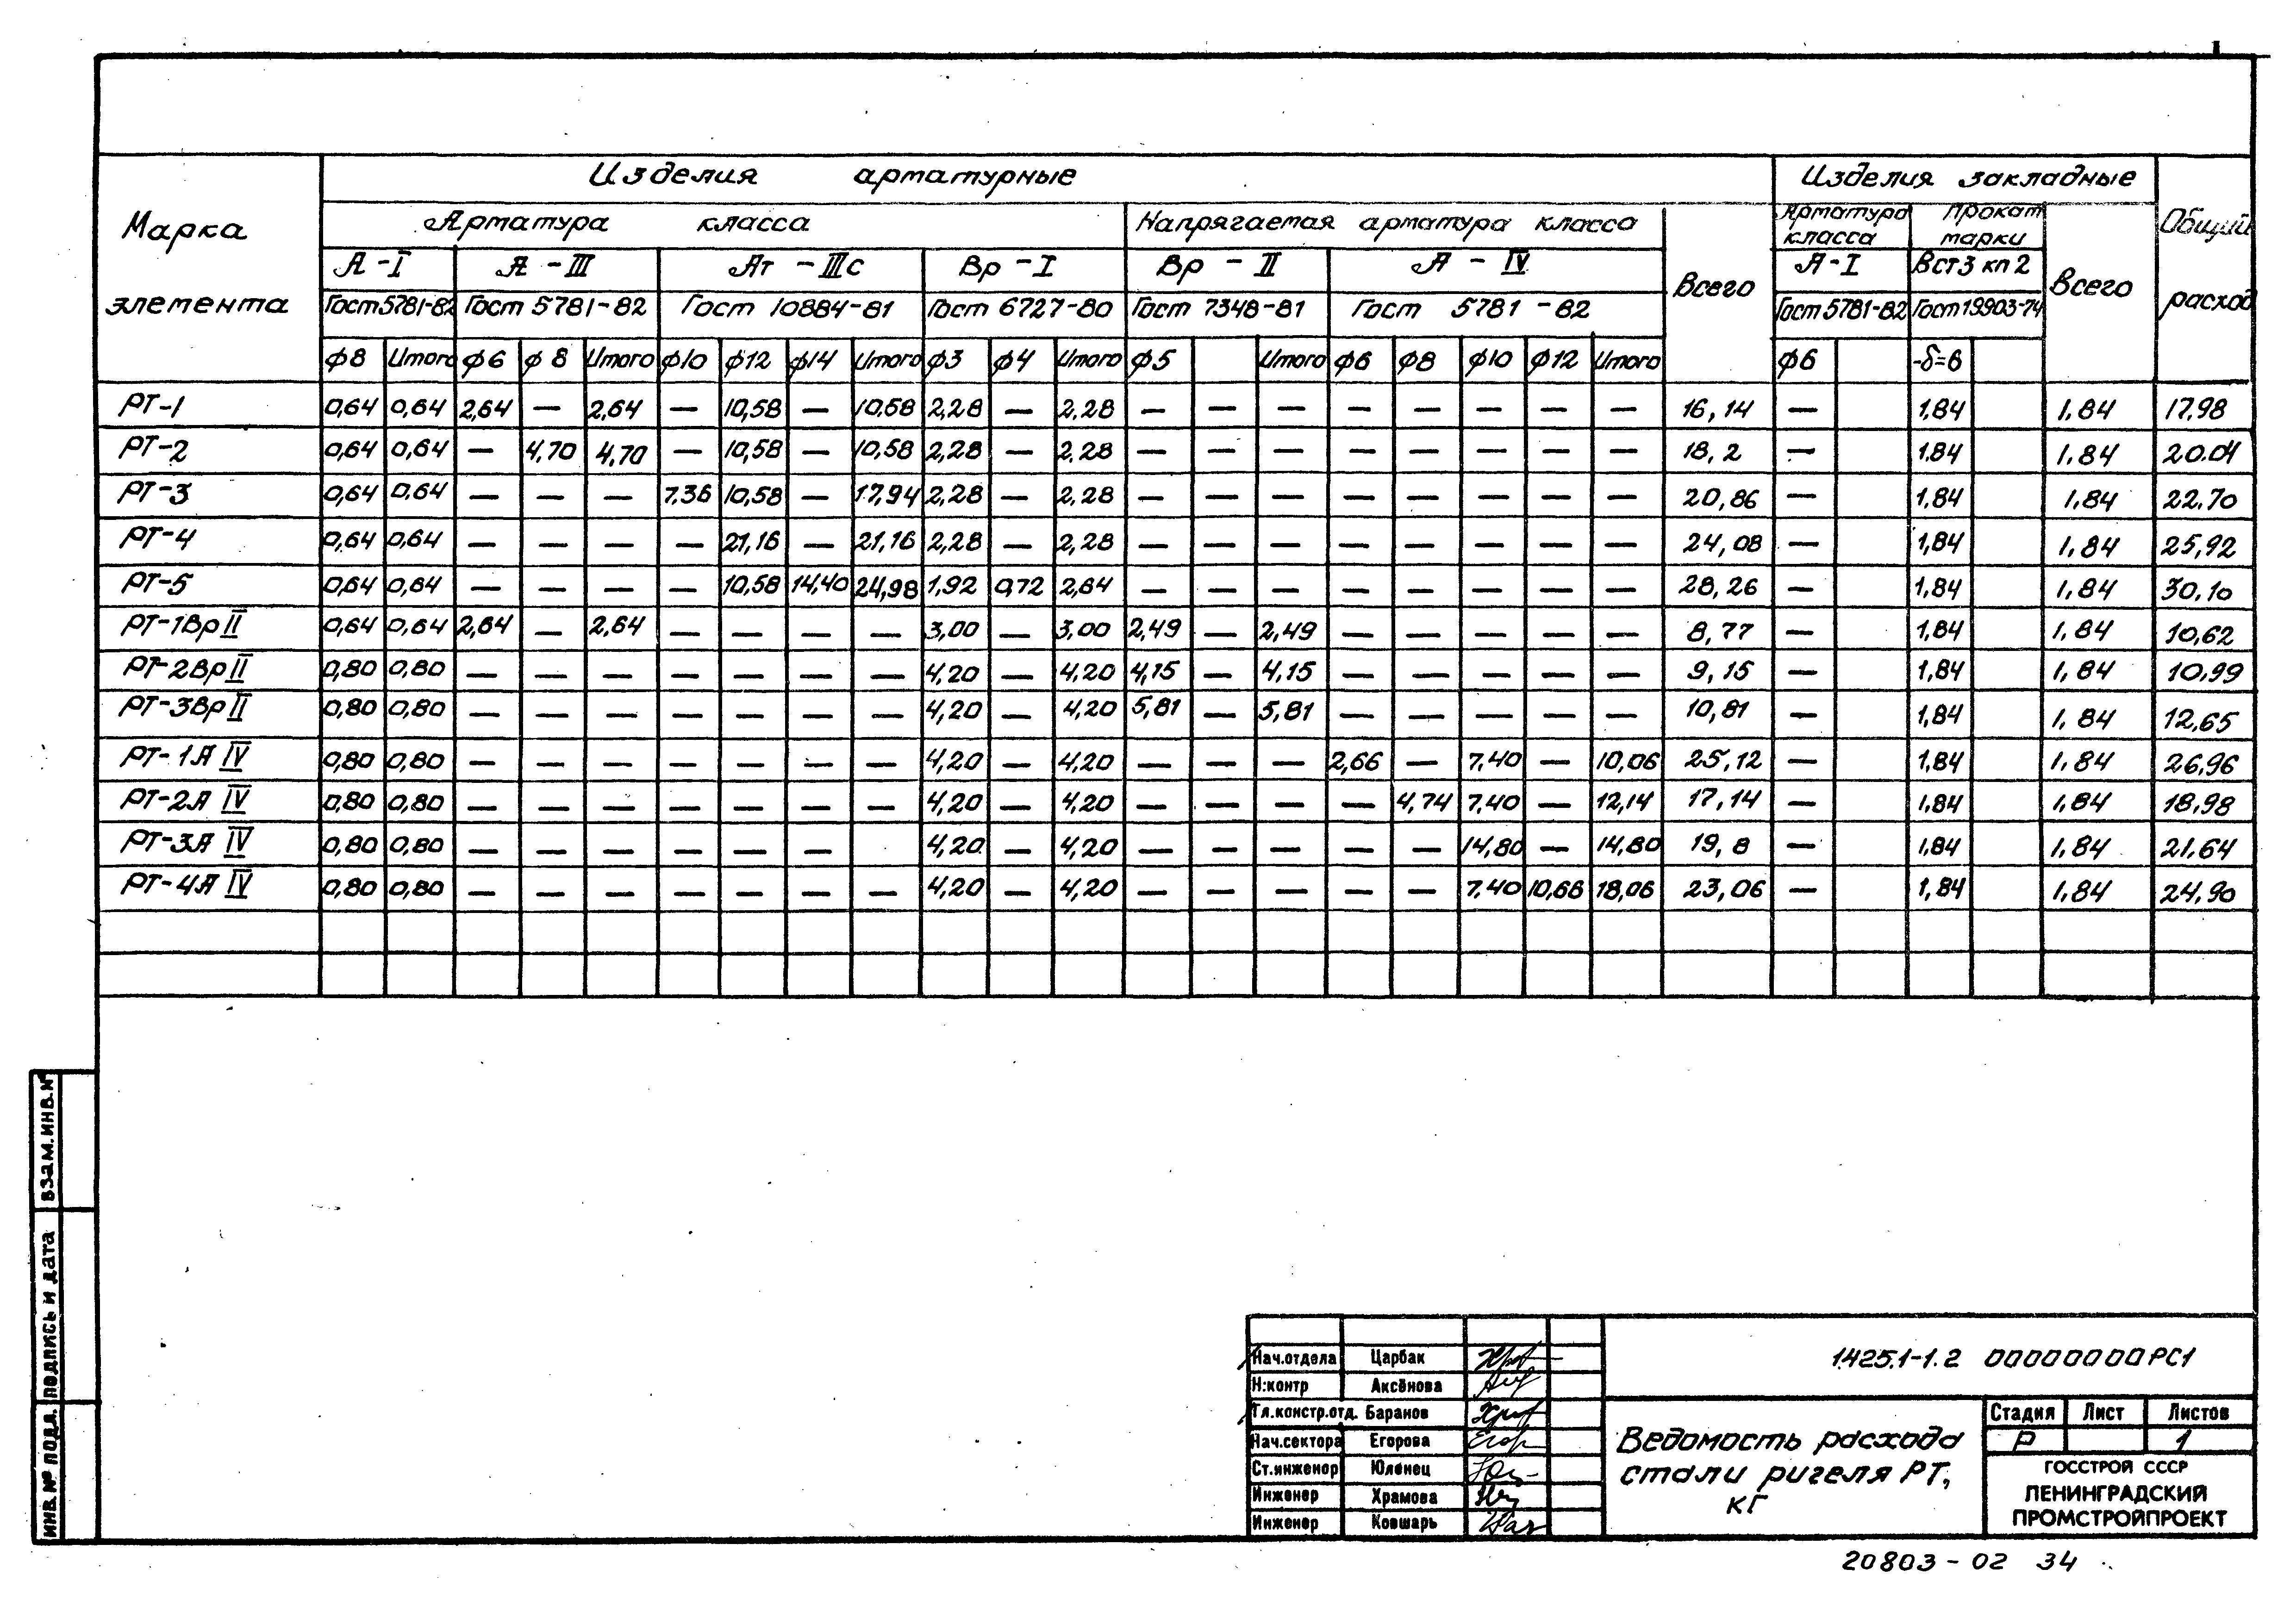 Марка элемента
Изделия арматурные
Изделия закладные
Общий расход
Арматура класса
Напрягаемая арматура класса
Всего
Арматура класса
Прокат марки
Всего
А-I
А-III
Ат-IIIс
Вр-I
Вр-II
А-IV
А-I
Вст3 кп2
Гост 5781-82 Гост 5781-82 Гост 10884-81 Гост 6727-80 Гост 7348-81 Гост 5781-82 Гост 5781-82 Гост 19903-74
ф8 Итого ф6 ф8 Итого ф10 ф12 ф14 Итого ф3 ф4 Итого ф5 Итого ф6 ф8 ф10 ф12 Итого ф6 -δ=6
РТ-1 0,64 0,64 2,64 — 2,64 — 10,58 — 10,58 2,28 — 2,28 — — — — — — — — 16,14 — 1,84 1,84 17,98
РТ-2 0,64 0,64 — 4,70 4,70 — 10,58 — 10,58 2,28 — 2,28 — — — — — — — — 18,2 — 1,84 1,84 20.04
РТ-3 0,64 0,64 — — — 7,36 10,58 — 17,94 2,28 — 2,28 — — — — — — — — 20,86 — 1,84 1,84 22,70
РТ-4 0,64 0,64 — — — — 21,16 — 21,16 2,28 — 2,28 — — — — — — — — 24,08 — 1,84 1,84 25,92
РТ-5 0,64 0,64 — — — — 10,58 14,40 24,98 1,92 0,72 2,64 — — — — — — — — 28,26 — 1,84 1,84 30,10
РТ-1Вр II 0,64 0,64 2,64 — 2,64 — — — — 3,00 — 3,00 2,49 — 2,49 — — — — — 8,77 — 1,84 1,84 10,62
РТ-2Вр II 0,80 0,80 — — — — — — — 4,20 — 4,20 4,15 — 4,15 — — — — — 9,15 — 1,84 1,84 10,99
РТ-3Вр II 0,80 0,80 — — — — — — — 4,20 — 4,20 5,81 — 5,81 — — — — — 10,81 — 1,84 1,84 12,65
РТ-1А IV 0,80 0,80 — — — — — — — 4,20 — 4,20 — — — 2,66 — 7,40 — 10,06 25,12 — 1,84 1,84 26,96
РТ-2А IV 0,80 0,80 — — — — — — — 4,20 — 4,20 — — — — 4,74 7,40 — 12,14 17,14 — 1,84 1,84 18,98
РТ-3А IV 0,80 0,80 — — — — — — — 4,20 — 4,20 — — — — — 14,80 — 14,80 19,8 — 1,84 1,84 21,64
РТ-4А IV 0,80 0,80 — — — — — — — 4,20 — 4,20 — — — — — 7,40 10,66 18,06 23,06 — 1,84 1,84 24,90
ВЗАМ.ИНВ.№
ПОДПИСЬ И ДАТА
ИНВ.№ ПОДЛ.
Нач.отдела Царбак
Н:контр Аксёнова
Гл.констр.отд. Баранов
Нач.сектора Егорова
Ст.инженер Юленец
Инженер Храмова
Инженер Ковшарь
1.425.1-1.2 00000000РС1
Ведомость расхода
стали ригеля РТ,
кг
Стадия Лист Листов
Р 1
ГОССТРОЙ СССР
ЛЕНИНГРАДСКИЙ
ПРОМСТРОЙПРОЕКТ
20803-02 34